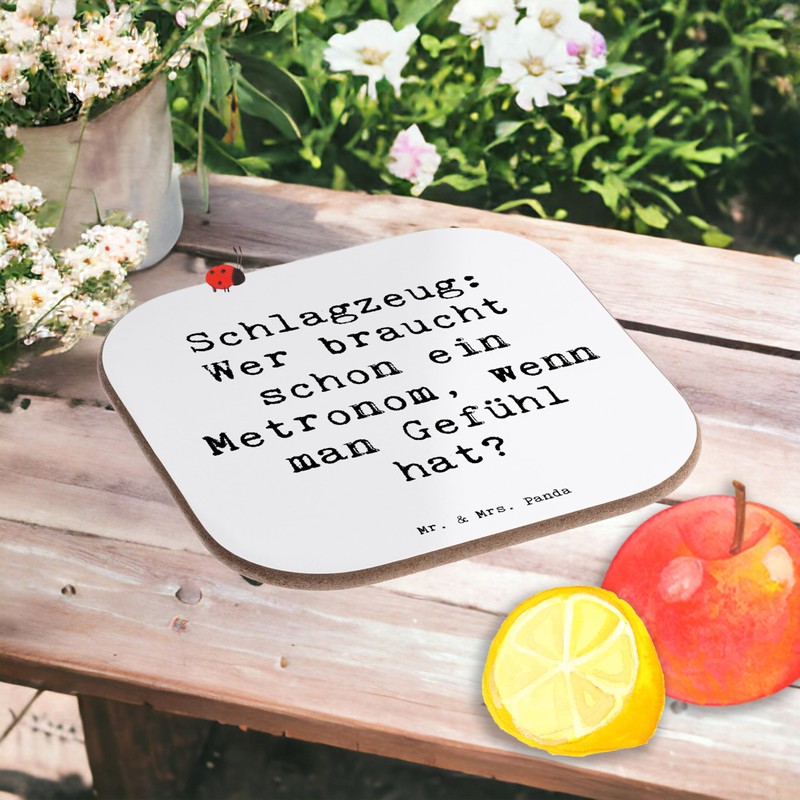 Schlagzeug:
Wer braucht
schon ein
Metronom, wenn
man Gefühl
hat?
Mr. & Mrs. Panda